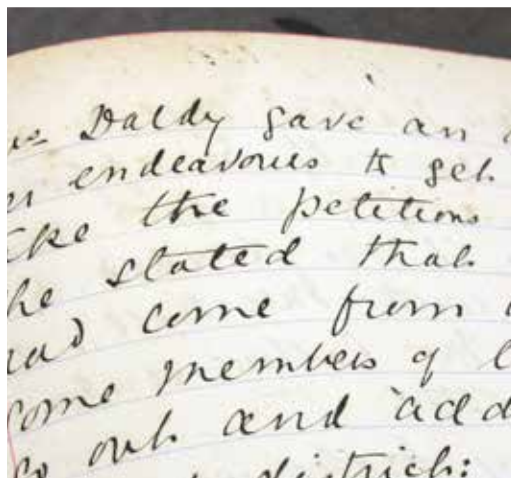 Daldy gave an
endeavours to get
the petitions
he stated that
had come from
some members of
go out and add
district: